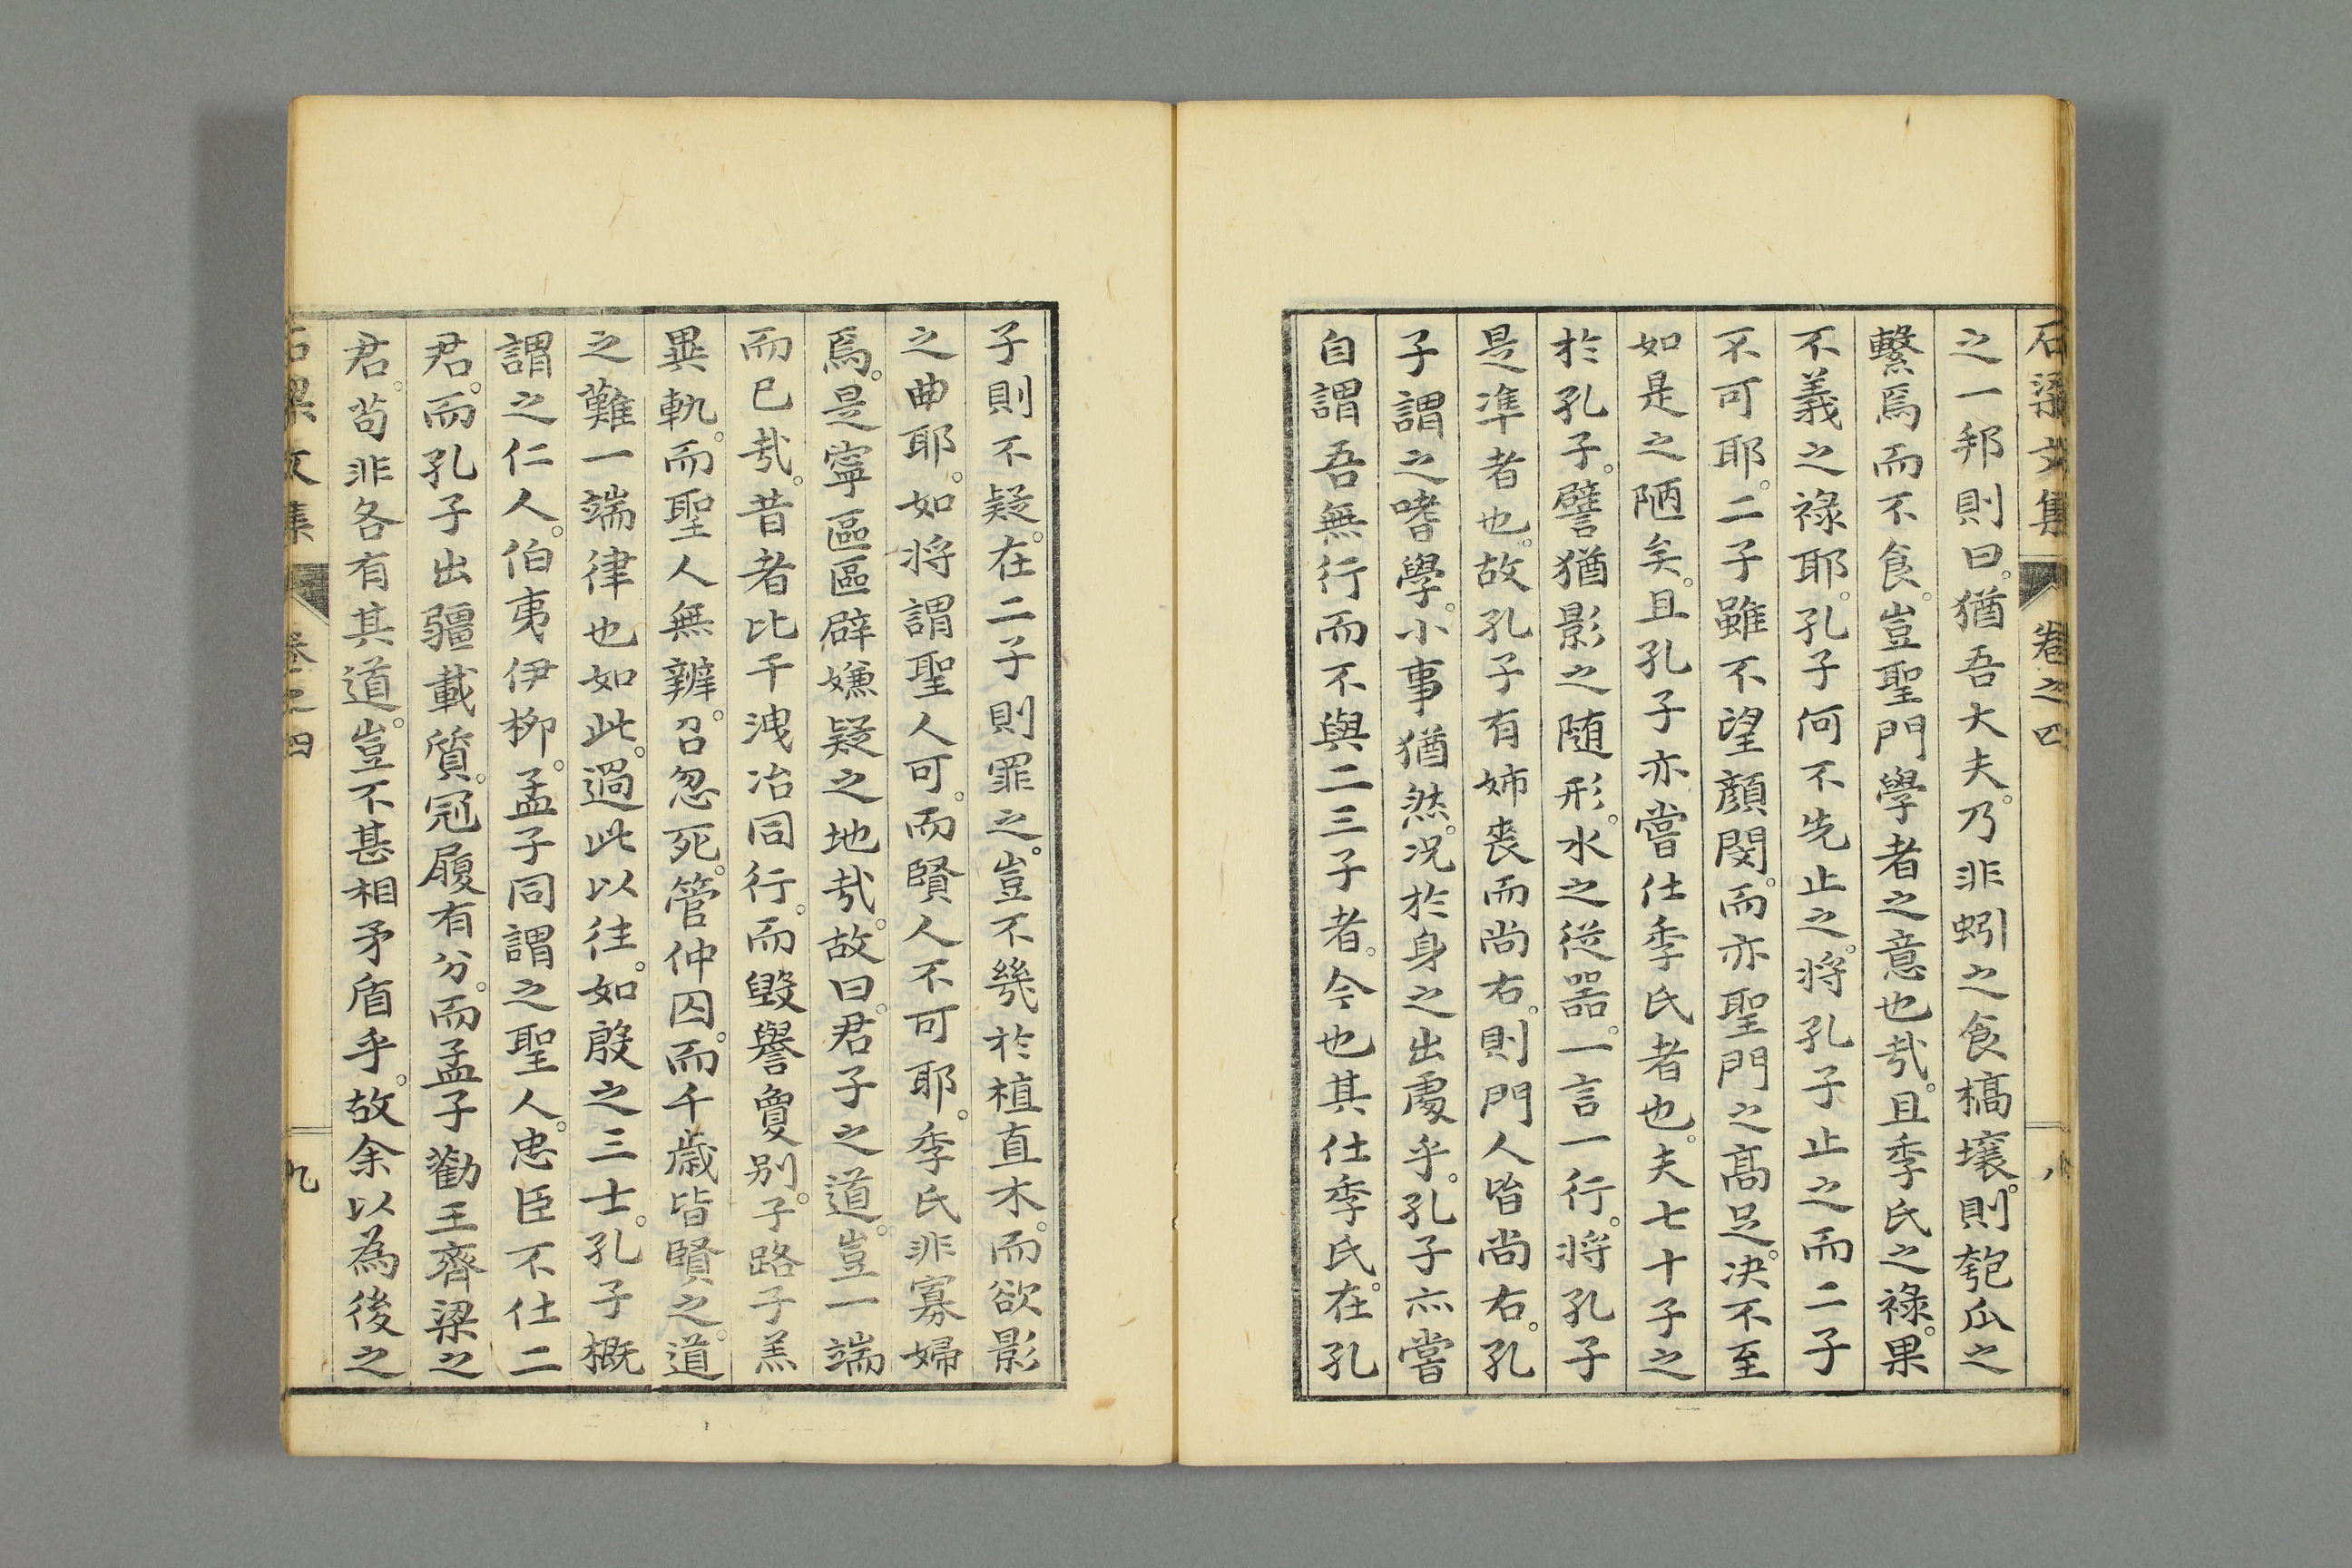 石梁文集 卷之四 八
之一邦則曰。猶吾大夫。乃非蚓之食槁壤。則匏瓜之
繫焉而不食。豈聖門學者之意也哉。且季氏之祿。果
不義之祿耶。孔子何不先止之。將孔子止之而二子
不可耶。二子雖不望顏閔。而亦聖門之髙足。决不至
如是之陋矣。且孔子亦嘗仕季氏者也。夫七十子之
於孔子。譬猶影之随形。水之從器。一言一行。將孔子
是準者也。故孔子有姊喪而尚右。則門人皆尚右。孔
子謂之嗜學。小事猶然。况於身之出處乎。孔子亦嘗
自謂吾無行而不與二三子者。今也其仕季氏。在孔
子則不疑。在二子則罪之。豈不幾於植直木。而欲影
之曲耶。如將謂聖人可。而賢人不可耶。季氏非寡婦
焉。是寧區區辟嫌疑之地哉。故曰。君子之道。豈一端
而已哉。昔者比干洩冶同行。而毀譽敻别。子路子羔
異軌。而聖人無辨。召忽死。管仲囚。而千歲皆賢之。道
之難一端律也如此。過此以往。如殷之三士。孔子概
謂之仁人。伯夷伊柳。孟子同謂之聖人。忠臣不仕二
君。而孔子出疆載質。冠履有分。而孟子勸王齊梁之
君。苟非各有其道。豈不甚相矛盾乎。故余以為後之
石梁文集 卷之四 九